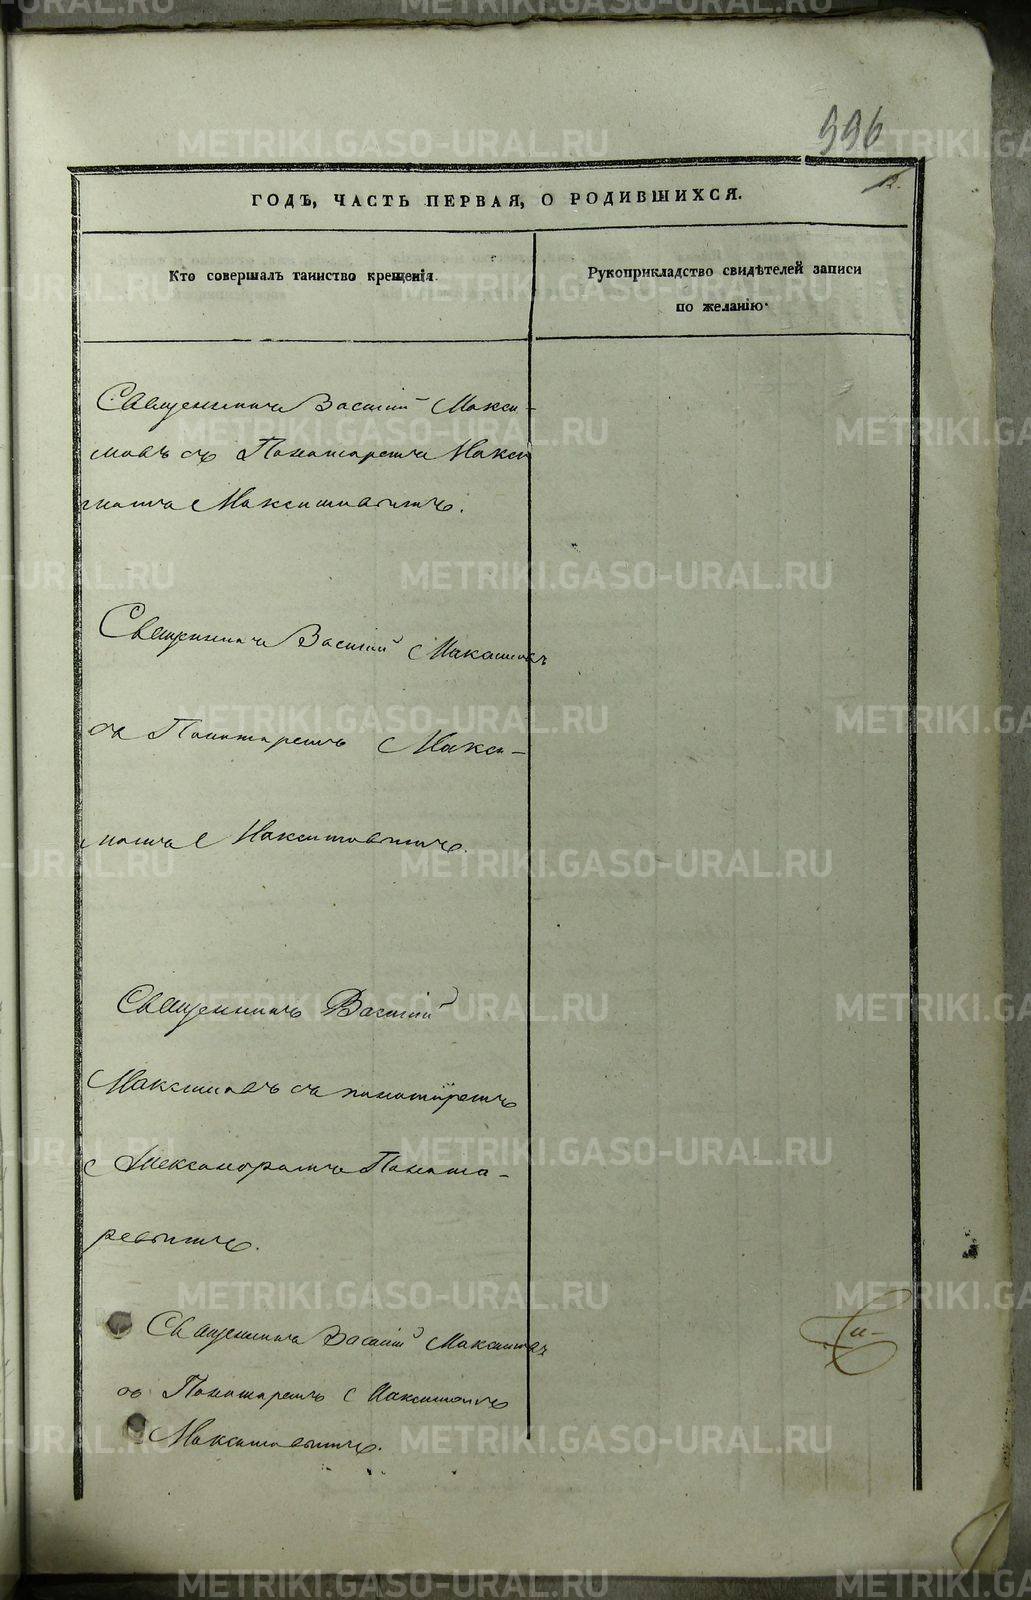 996
12.
ГОДЪ, ЧАСТЬ ПЕРВАЯ, О РОДИВШИХСЯ.
Кто совершалъ таинство крещенія.
Рукоприкладство свидѣтелей записи
по желанію.
Священникъ Василій Макси-
мовъ съ Пономаремъ Макси
момъ Максимовымъ.
Священникъ Василій Максимовъ
съ Пономаремъ Макси-
момъ Максимовымъ.
Священникъ Василій
Максимовъ съ пономаремъ
Александромъ Понома-
ревымъ.
Священникъ Василій Максимовъ
съ Пономаремъ Максимомъ
Максимовымъ.
METRIKI.GASO-URAL.RU